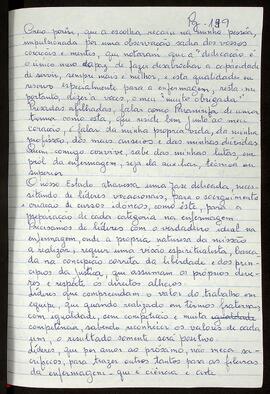 Pg - 119
Creio porém, que a escolha, recaiu na minha pessoa,
impulsionada por uma observação sacha dos vossos
corações e mentes, que notaram que a "dedicação é
o único meio capaz de fazer desabrochar a capacidade
de servir, sempre mais e melhor, e esta qualidade eu
reservo especialmente para a enfermagem, resta-me
portanto, dizer a vocês, o meu "muito obrigado."
Prezados afilhados, falar como Paraninfa de uma
turma como esta, que reside bem junto ao meu
coração, é falar da minha própria vida, da minha
profissão, dos meus anseios e das minhas dúvidas
Quem comigo convive, sabe das minhas lutas em
prol da enfermagem, seja da auxiliar, técnica ou
superior.
O nosso Estado atravessa uma fase delicada, neces-
sitando de líderes vocacionais, para o soerguimento
e criação de cursos idôneos, como este, para a
preparação de cada categoria na enfermagem
Precisamos de líderes com o verdadeiro ideal na
enfermagem onde a própria natureza da missão
a realizar, requer uma visão espiritualista, basea-
da na concepção correta da liberdade e dos prin-
cípios da Justiça, que assumam os próprios deve-
res e respeite os direitos alheios.
Líderes que compreendam o valor do trabalho em
equipe, que quando realizado em termos fraternos,
com igualdade, sem competição e muita igualdade
competência, sabendo reconhecer os valores de cada
um, o resultado somente será positivo.
Líderes, que por amor ao próximo, não meça sa-
crifícios, para trazer outros tantos para as fileiras
da enfermagem - que é ciência e arte